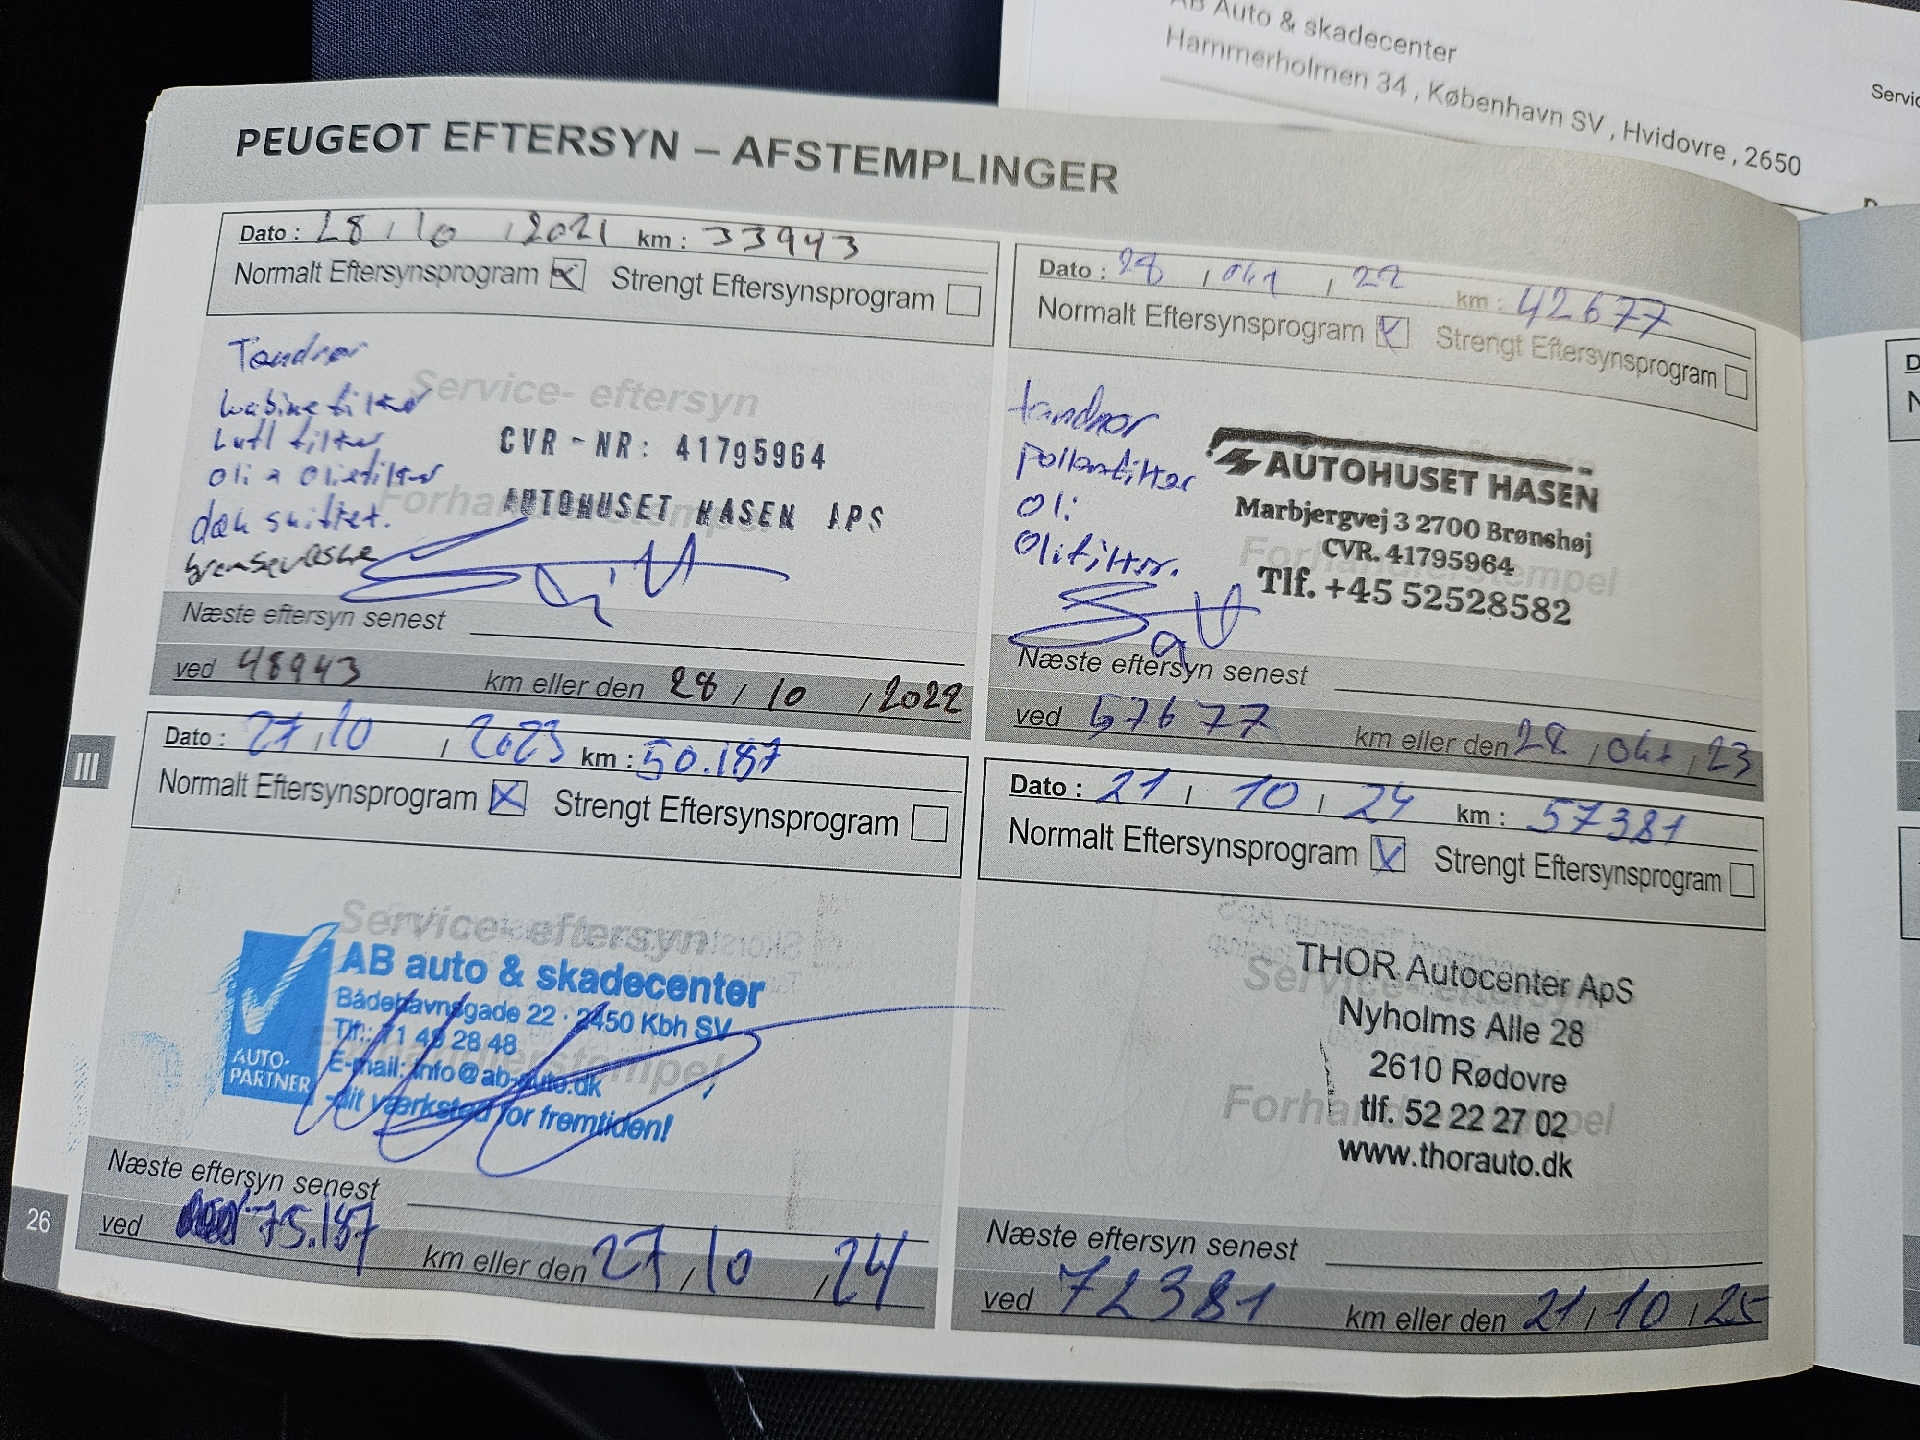 AB Auto & skadecenter
Hammerholmen 34 , København SV , Hvidovre , 2650
PEUGEOT EFTERSYN – AFSTEMPLINGER
Dato : 28 / 10 / 2021 km : 33943
Normalt Eftersynsprogram Strengt Eftersynsprogram
Tandrør
kabinefilter
Luft filter
oli & oliefilter
dæk skiftet.
bremsevæske
Service- eftersyn
CVR-NR: 41795964
AUTOHUSET HASEN APS
Næste eftersyn senest
ved 48943 km eller den 28 / 10 / 2022
Dato : 28 / okt / 22 km : 42677
Normalt Eftersynsprogram Strengt Eftersynsprogram
tandrør
pollenfilter
oli
olifilter.
AUTOHUSET HASEN
Marbjergvej 3 2700 Brønshøj
CVR. 41795964
Tlf. +45 52528582
Næste eftersyn senest
ved 57677 km eller den 28 / okt / 23
III
Dato : 27 / 10 / 2023 km : 50.187
Normalt Eftersynsprogram X Strengt Eftersynsprogram
Service- eftersyn
AB auto & skadecenter
Bådehavnsgade 22 · 2450 Kbh SV
Tlf.: 71 48 28 48
E-mail: info@ab-auto.dk
-dit værksted for fremtiden!
AUTO-
PARTNER
Næste eftersyn senest
ved 75.187 km eller den 27 / 10 / 24
Dato : 21 / 10 / 24 km : 57381
Normalt Eftersynsprogram X Strengt Eftersynsprogram
Service- eftersyn
Forhandlerstempel
THOR Autocenter ApS
Nyholms Alle 28
2610 Rødovre
tlf. 52 22 27 02
www.thorauto.dk
Næste eftersyn senest
ved 72381 km eller den 21 / 10 / 25
26